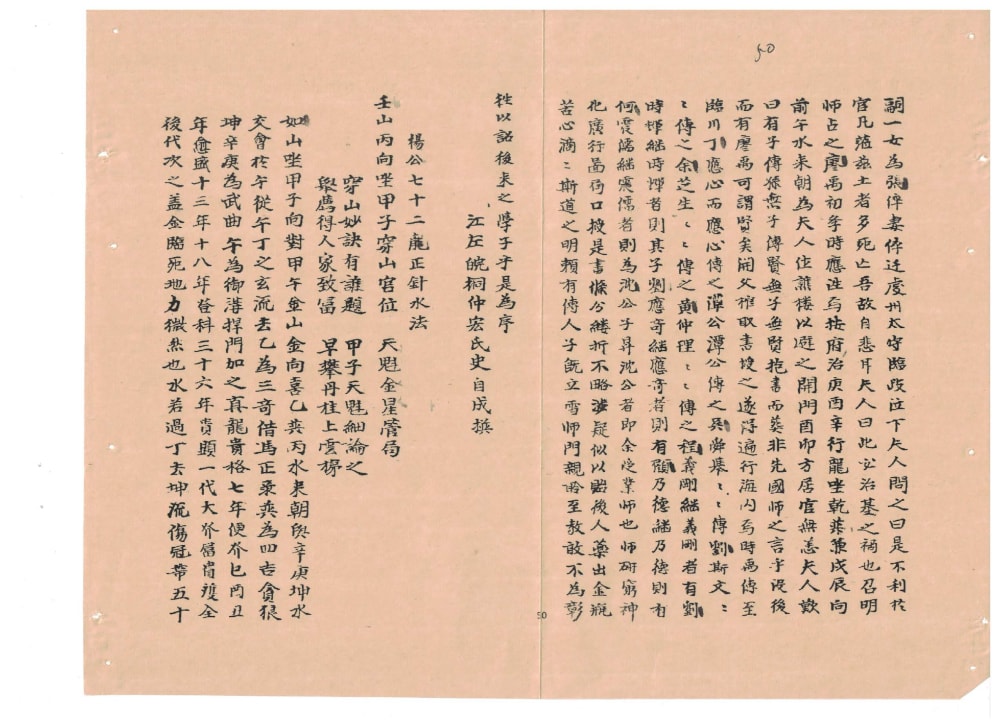 50
嗣一女為張倅妻倅迁虔州太守臨政泣下夫人問之曰是不利於
官凡蒞茲土者多死亡吾故自悲耳夫人曰此必治基之禍也召明
師占之廖禹初年時應 与 按府治庚酉辛行龍坐乾 兼戌辰向
前午水来朝為夫人住譙楼以 之開門酉卯方居官無恙夫人歎
曰有子傳孫無子傳賢無子無賢抱書而葬非先國師之言乎没後
而有廖禹可謂賢矣開父棺取書授之遂得遍行海内与時禹傳至
臨川丁應心而應心傳之潭公潭公傳之吳舜舉〻〻傳劉斯文〻
〻傳之余芝生〻〻傳之黄仲理〻〻傳之程義剛継義剛者有劉
時 継時 者則其子劉應奇継應奇者則有顧乃德継乃德則有
何雯濡継雯儒者則為沈公子昇沈公者即余受業師也師研窮神
化廣行啚局口授是書條分縷折不略 疑似以貽後人藥出金瓶
苦心滴〻斯道之明賴有傳人子既立雪師門親 至教敢不為彰
50
往以詔後来之學子乎是為序
江左皖桐仲宏氏史自成撰
楊公七十二龍正針水法
穿山妙訣有誰題　甲子天魁細論之
舉薦得人家致富　早攀丹桂上雲梯
壬山丙向坐甲子穿山官位　天魁金星管局
如山坐甲子向對甲午金山金向喜乙 丙水来朝與辛庚坤水
交會於午從午丁之玄流去乙為三奇借馬正 為四吉貪狼
坤辛庚為武曲午為御溝捍門加之真龍貴格七年便 巳酉丑
年愈盛十三年十八年登科三十六年貴顯一代大 富貴 全
後代次之盖金臨死地力微然也水若過丁去坤流傷冠帶五十